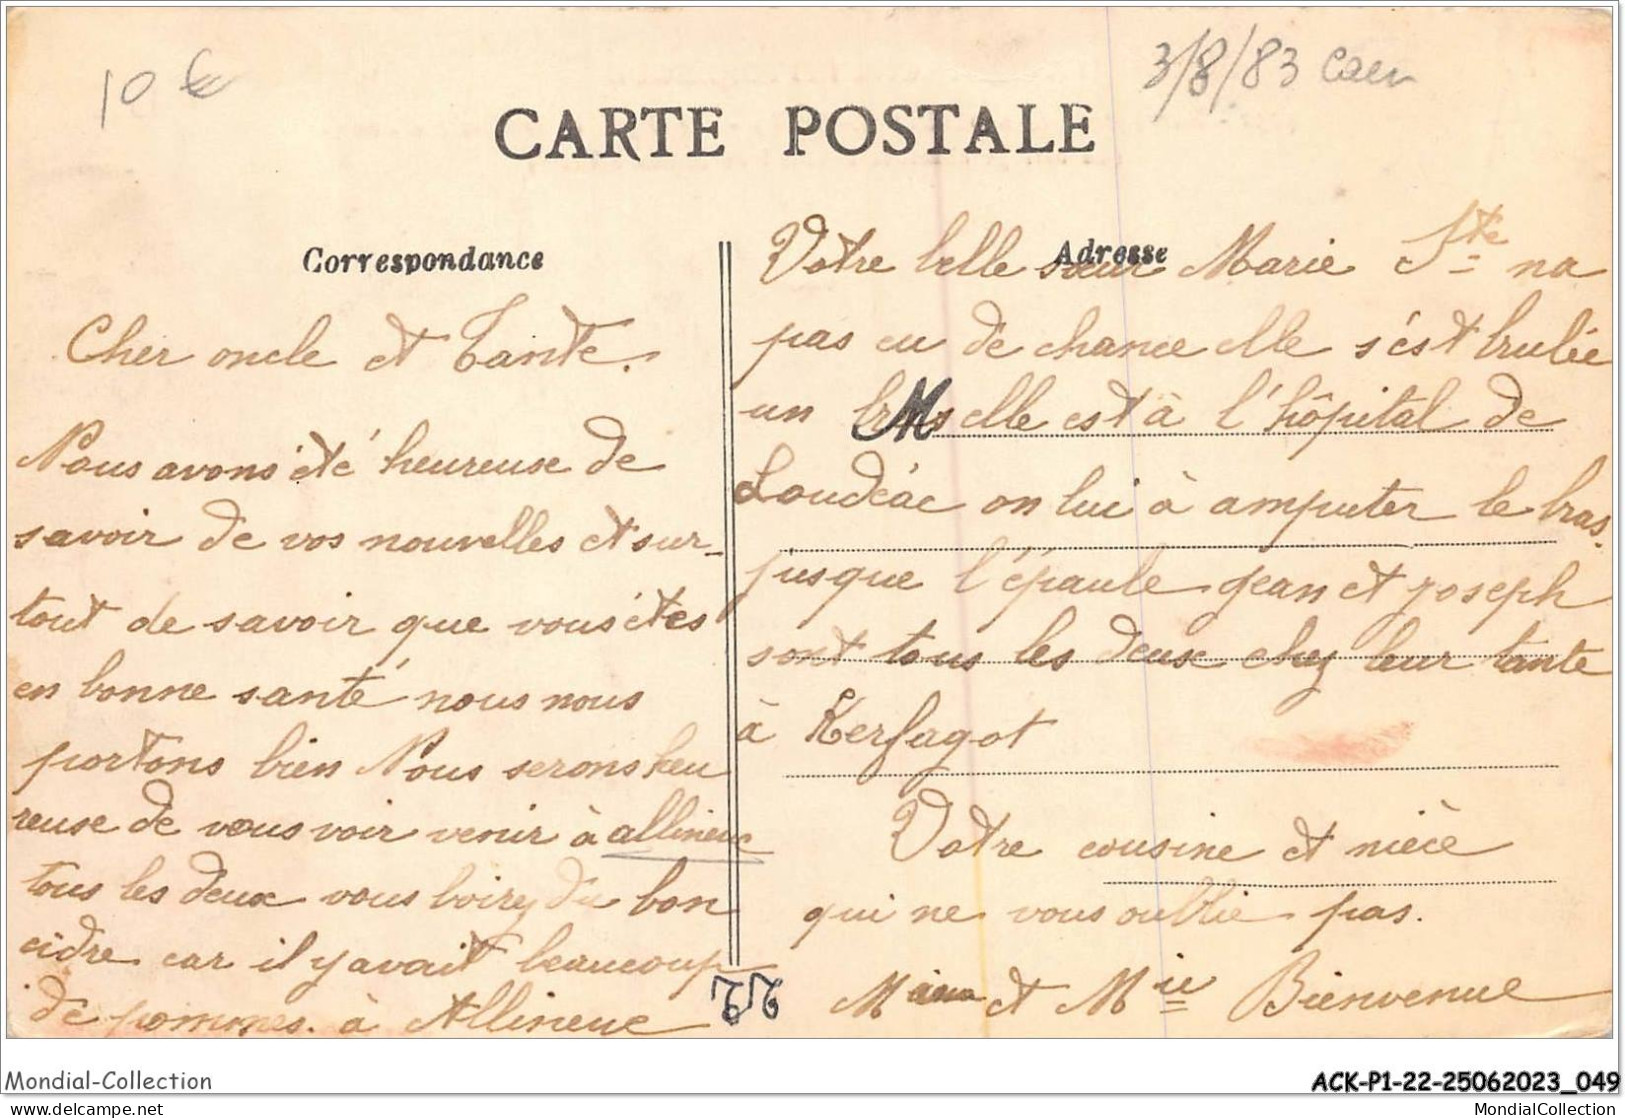 10 €
3/8/83 Caen
CARTE POSTALE
Correspondance
Cher oncle et Tante.
Nous avons été heureuse de
savoir de vos nouvelles et sur-
tout de savoir que vous êtes
en bonne santé nous nous
portons bien Nous serons heu
reuse de vous voir venir à allineuc
tous les deux vous boirez du bon
cidre car il y avait beaucoup
de pommes à Allineuc
22
Adresse
Votre belle sœur Marie Ste na
pas eu de chance elle s'est brulée
un bras elle est à l'hôpital de
M
Loudéac on lui à amputer le bras
jusque l'épaule jean et joseph
sont tous les deux chez leur tante
à Kerfagot
Votre cousine et nièce
qui ne vous oublie pas.
et Mie Bienvenue
Mondial-Collection
ACK-P1-22-25062023_049
delcampe.net
MondialCollection